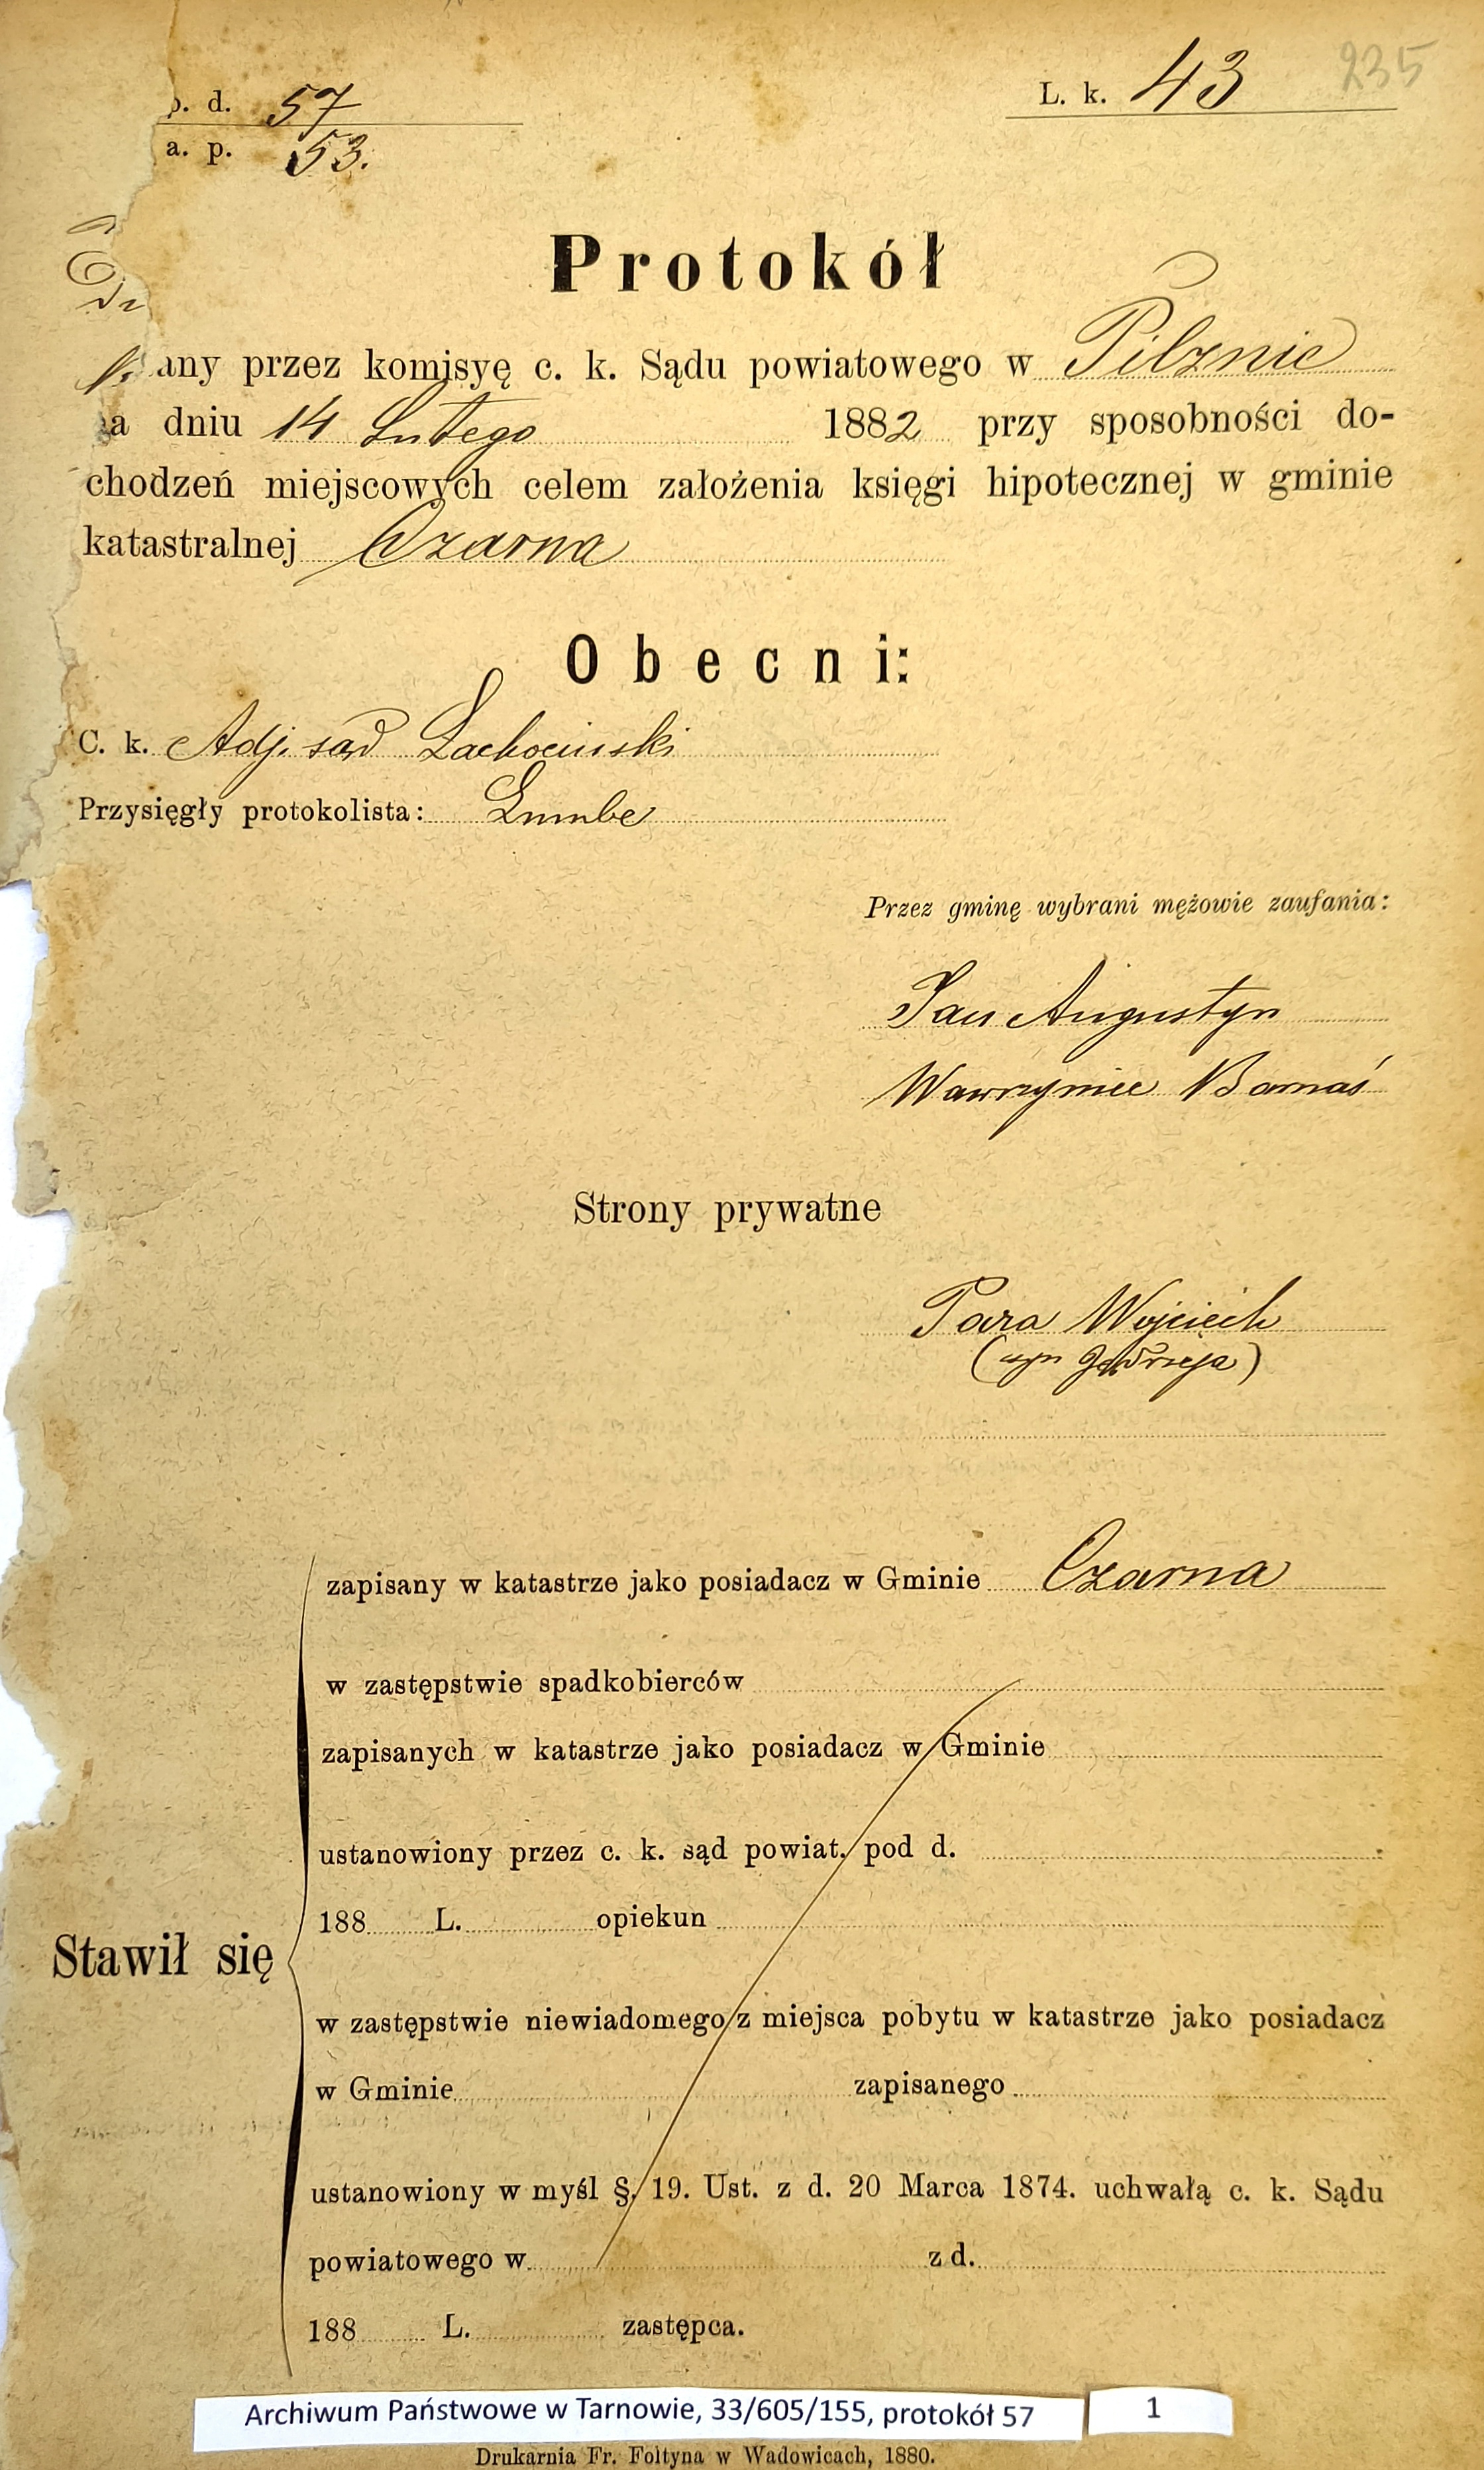 p. d. 57
a. p. 53.
L. k. 43
235
Protokół
any przez komisyę c. k. Sądu powiatowego w Pilznie
na dniu 14 Lutego 1882 przy sposobności do-
chodzeń miejscowych celem założenia księgi hipotecznej w gminie
katastralnej Czarna
Obecni:
C. k. Adj. sąd Lachociński
Przysięgły protokolista:
Przez gminę wybrani mężowie zaufania:
Jan Augustyn
Wawrzyniec Barnaś
Strony prywatne
Para Wojciech
(syn Jędrzeja)
zapisany w katastrze jako posiadacz w Gminie Czarna
w zastępstwie spadkobierców
zapisanych w katastrze jako posiadacz w Gminie
ustanowiony przez c. k. sąd powiat. pod d.
188 L. opiekun
Stawił się
w zastępstwie niewiadomego z miejsca pobytu w katastrze jako posiadacz
w Gminie zapisanego
ustanowiony w myśl §. 19. Ust. z d. 20 Marca 1874. uchwałą c. k. Sądu
powiatowego w z d.
188 L. zastępca.
Archiwum Państwowe w Tarnowie, 33/605/155, protokół 57 1
Drukarnia Fr. Foltyna w Wadowicach, 1880.